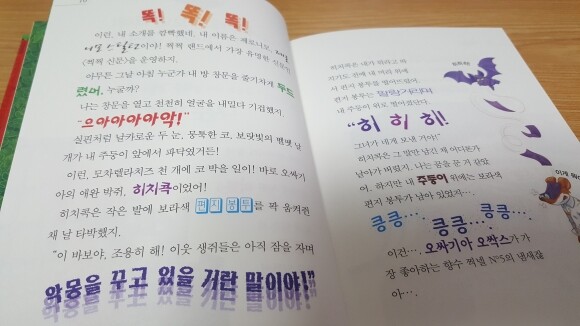 16
똑! 똑! 똑!
이런, 내 소개를 깜빡했네. 내 이름은 제로니모,
스틸턴이야! 찍찍 랜드에서 가장 유명한
《찍찍 신문》을 운영하지.
아무튼 그날 아침 누군가 내 방 창문을 줄기차게 두드
렸어. 누굴까?
나는 창문을 열고 천천히 얼굴을 내밀다 기겁했지.
"으아아아아악!"
실핀처럼 날카로운 두 눈, 뭉툭한 코, 보랏빛의 뱀뱀 날
개가 내 주둥이 앞에서 파닥였거든!
이런, 모차렐라치즈 천 개에 코 박을 일이! 바로 오싹기
아의 애완 박쥐, 히치콕이었어!
히치콕은 작은 발에 보라색 편지 봉투를 꽉 움켜쥔
채 날 타박했지.
"이 바보야, 조용히 해! 이웃 생쥐들은 아직 잠을 자며
악몽을 꾸고 있을 거란 말이야!"
히치콕은 내가 뭐라고 따
지기도 전에 내 머리 위에
서 편지 봉투를 떨어뜨렸어.
편지 봉투는 팔랑거리며
내 주둥이 위로 떨어졌단다.
"히 히 히!
그녀가 내게 보낸 거야!"
히치콕은 그 말만 남긴 채 어디론가
날아가 버렸지. 나는 꿈을 꾼 거 같았
어. 하지만 내 주둥이 위에는 보라색
편지 봉투가 남아 있었지…….
킁킁…. 킁킁…. 킁킁….
이건…. 오싹기아 오싹스가 가
장 좋아하는 향수 찍넬 N°5의 냄새잖
아….
히치콕
이게 뭐